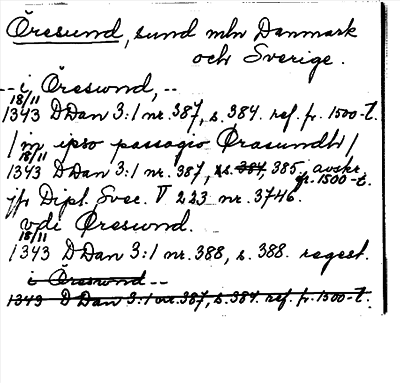 Öresund, sund mln Danmark
och Sverige.
-- i Öreswnd, --
18/11
1343 DDan 3:1 nr. 387, s. 384. ref. fr. 1500-t.
/in ipso passagio Ørasundh/
18/11
1343 DDan 3:1 nr. 387, s. 384, 385 avskr. fr. 1500-t.
jfr Dipl. Svec. V 223 nr. 3746.
vdi Øreswnd.
18/11
1343 DDan 3:1 nr. 388, s. 388. regest.
i Öreswnd --
1343 DDan 3:1 nr. 387, s. 384. ref. fr. 1500-t.